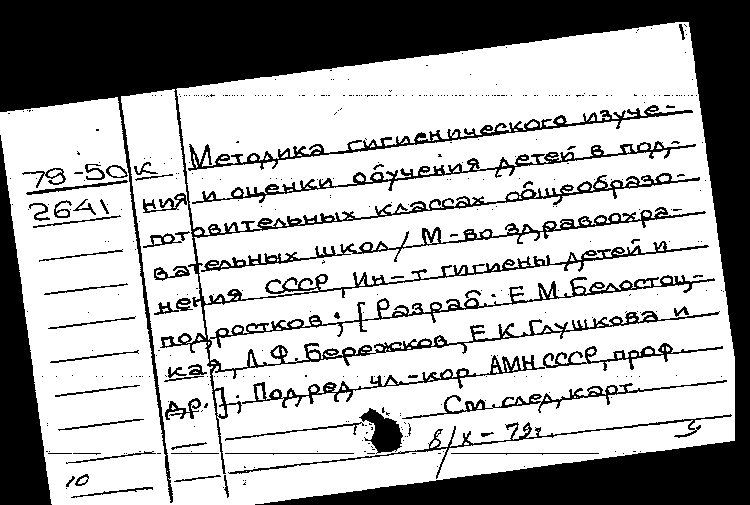 79-50к Методика гигиенического изуче-
2641 ния и оценки обучения детей в под-
готовительных классах общеобразо-
вательных школ / М-во здравоохра-
нения СССР, Ин-т гигиены детей и
подростков; [Разраб.: Е.М.Белостоц-
кая, Л.Ф.Бережков, Е.К.Глушкова и
др.]; Под ред. чл.-кор. АМН СССР, проф.
См. след. карт.
8/X-79г.
10